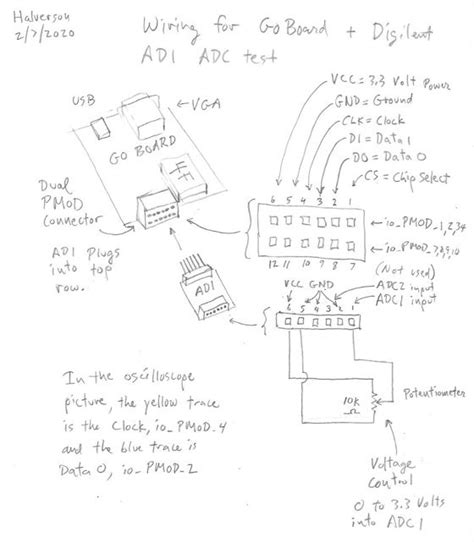 Halverson
2/7/2020
Wiring for Go Board + Digilent
AD1 ADC test
USB
VGA
GO BOARD
Dual
PMOD
Connector
AD1 Plugs
into top
row.
AD1
VCC = 3.3 Volt Power
GND = Ground
CLK = Clock
D1 = Data 1
D0 = Data 0
CS = Chip Select
6 5 4 3 2 1
io_PMOD_1,2,3,4
io_PMOD_7,8,9,10
12 11 10 9 8 7
(Not used)
VCC GND
ADC2 input
ADC1 input
6 5 4 3 2 1
In the oscilloscope
picture, the yellow trace
is the Clock, io_PMOD_4
and the blue trace is
Data 0, io_PMOD_2
10K
Ω
Potentiometer
Voltage
Control
0 to 3.3 Volts
into ADC1